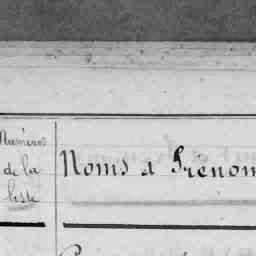 Numéros
de la
liste
Noms & Prenom